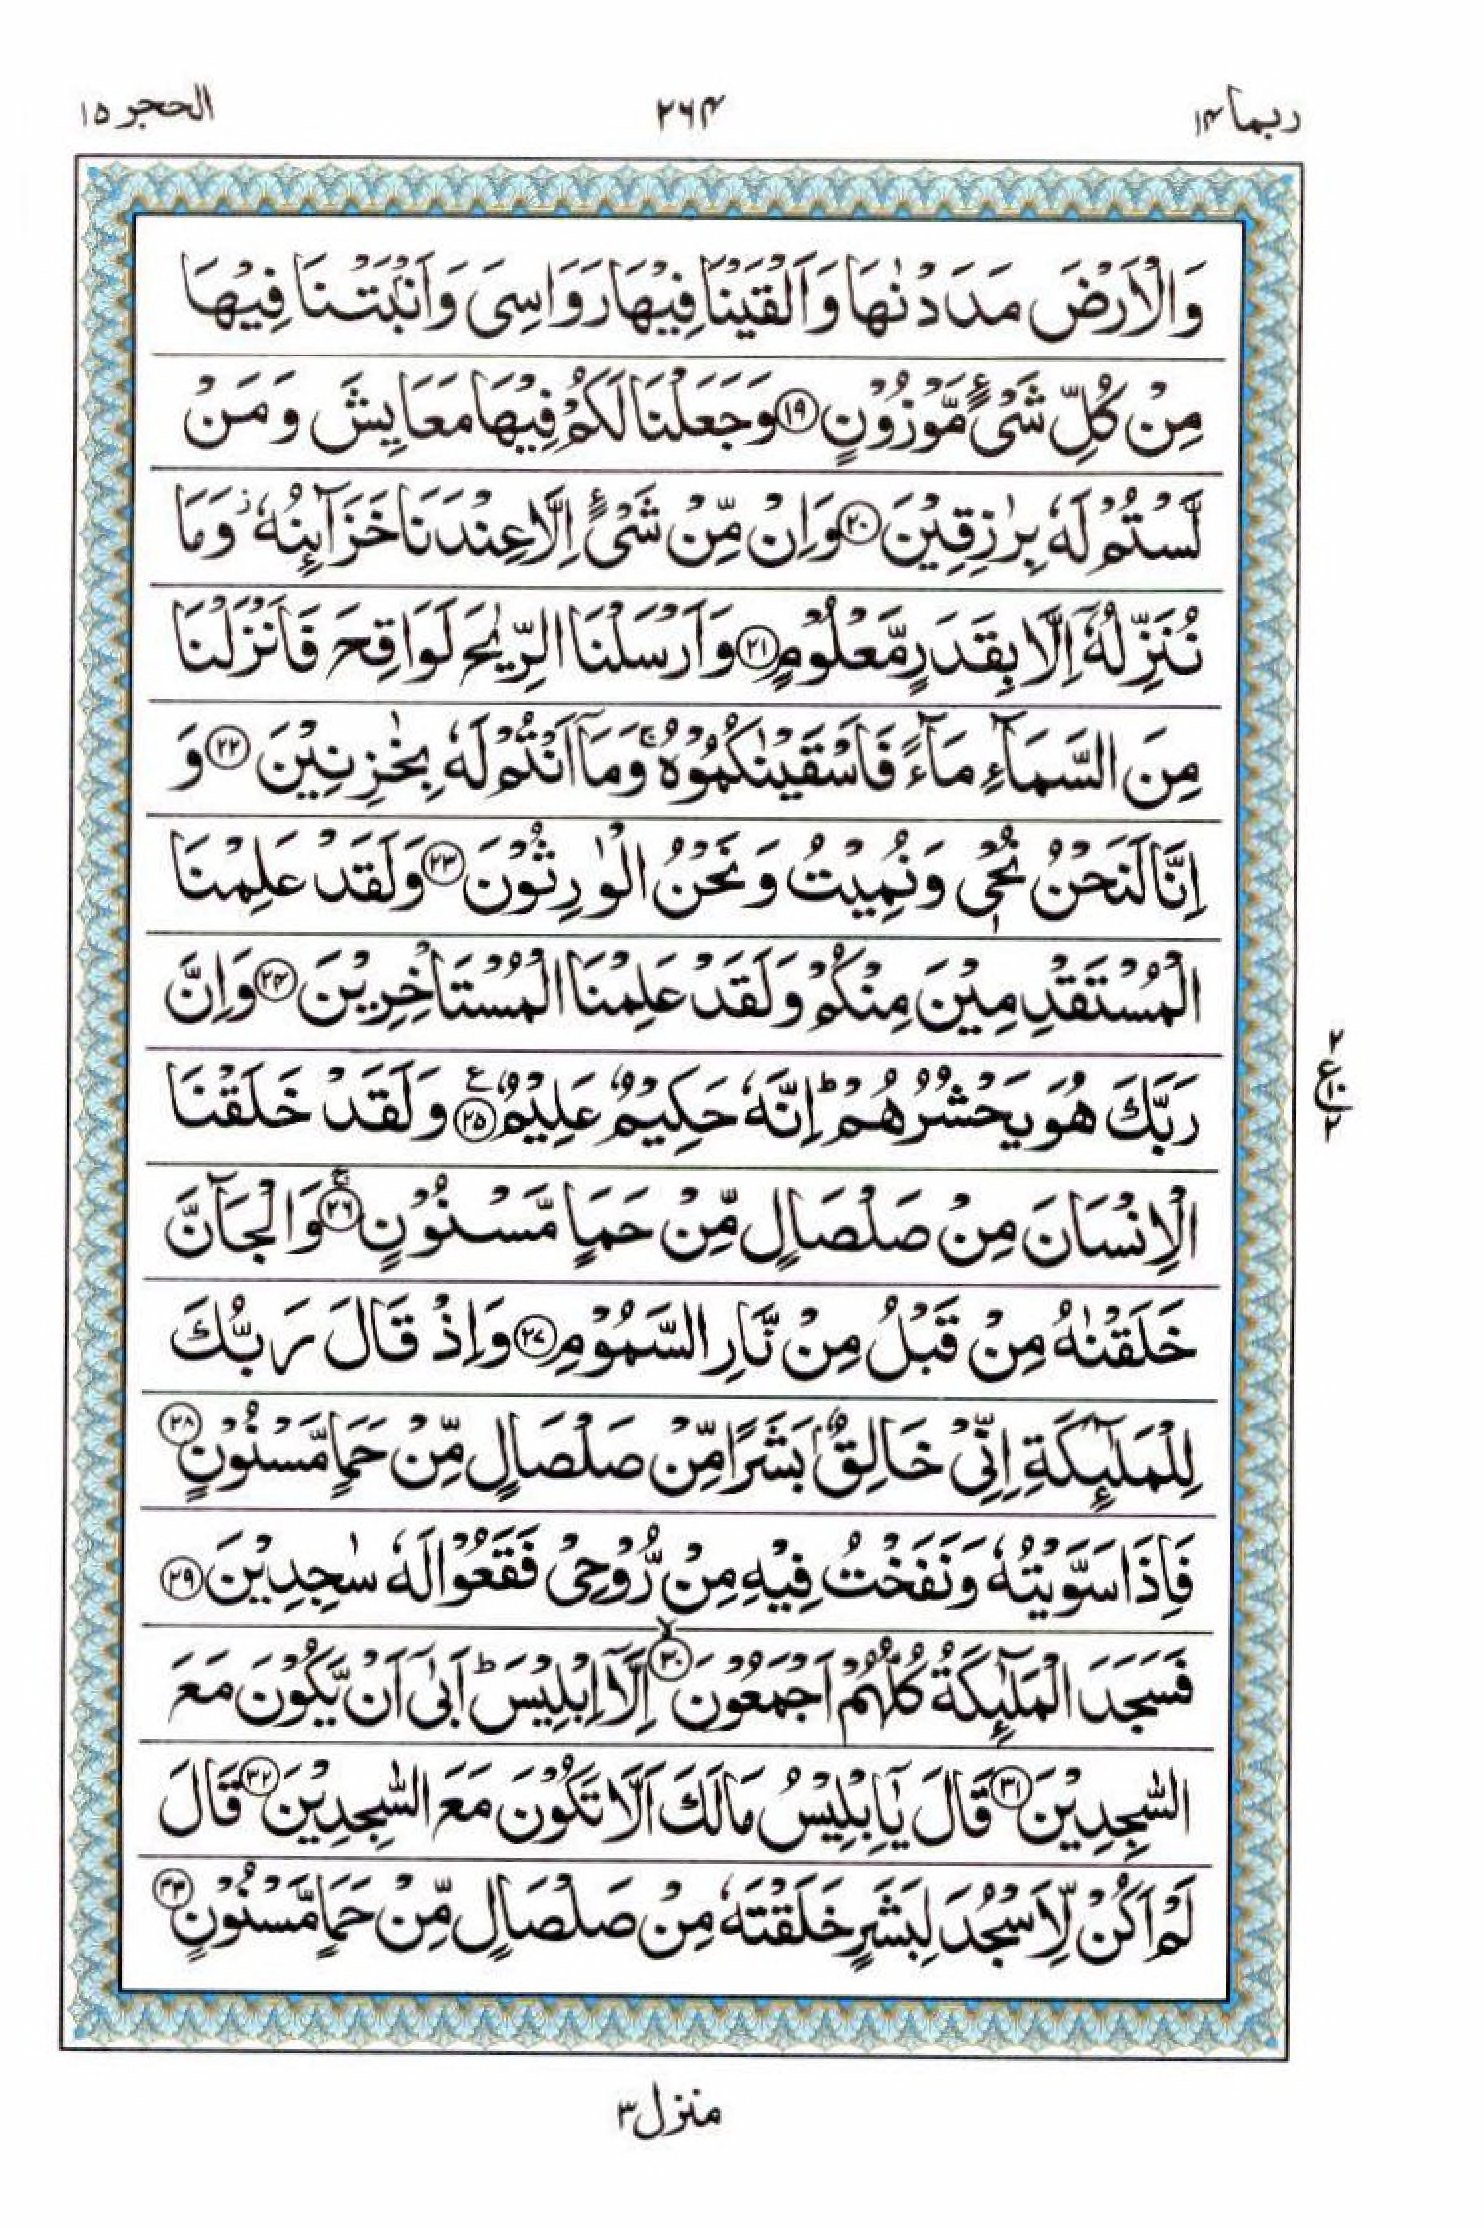 ربما ١٤
٢٦٤
الحجر ١٥
وَالْاَرْضَ مَدَدْنٰهَا وَاَلْقَيْنَا فِيْهَا رَوَاسِىَ وَاَنْۢبَتْنَا فِيْهَا
مِنْ كُلِّ شَىْءٍ مَّوْزُوْنٍ ﴿١٩﴾ وَجَعَلْنَا لَكُمْ فِيْهَا مَعَايِشَ وَمَنْ
لَّسْتُمْ لَهٗ بِرٰزِقِيْنَ ﴿٢٠﴾ وَاِنْ مِّنْ شَىْءٍ اِلَّا عِنْدَنَا خَزَآئِنُهٗ ز وَمَا
نُنَزِّلُهٗٓ اِلَّا بِقَدَرٍ مَّعْلُوْمٍ ﴿٢١﴾ وَاَرْسَلْنَا الرِّيٰحَ لَوَاقِحَ فَاَنْزَلْنَا
مِنَ السَّمَآءِ مَآءً فَاَسْقَيْنٰكُمُوْهُ ۚ وَمَآ اَنْتُمْ لَهٗ بِخٰزِنِيْنَ ﴿٢٢﴾ وَ
اِنَّا لَنَحْنُ نُحْىٖ وَنُمِيْتُ وَنَحْنُ الْوٰرِثُوْنَ ﴿٢٣﴾ وَلَقَدْ عَلِمْنَا
الْمُسْتَقْدِمِيْنَ مِنْكُمْ وَلَقَدْ عَلِمْنَا الْمُسْتَاْخِرِيْنَ ﴿٢٤﴾ وَاِنَّ
رَبَّكَ هُوَ يَحْشُرُهُمْ ؕ اِنَّهٗ حَكِيْمٌ عَلِيْمٌ ﴿٢٥﴾ ع وَلَقَدْ خَلَقْنَا
٢ ع ١٠ ٢
الْاِنْسَانَ مِنْ صَلْصَالٍ مِّنْ حَمَاٍ مَّسْنُوْنٍ ﴿٢٦﴾ ۚ وَالْجَآنَّ
خَلَقْنٰهُ مِنْ قَبْلُ مِنْ نَّارِ السَّمُوْمِ ﴿٢٧﴾ وَاِذْ قَالَ رَبُّكَ
لِلْمَلٰٓئِكَةِ اِنِّىْ خَالِقٌۢ بَشَرًا مِّنْ صَلْصَالٍ مِّنْ حَمَاٍ مَّسْنُوْنٍ ﴿٢٨﴾
فَاِذَا سَوَّيْتُهٗ وَنَفَخْتُ فِيْهِ مِنْ رُّوْحِىْ فَقَعُوْا لَهٗ سٰجِدِيْنَ ﴿٢٩﴾
فَسَجَدَ الْمَلٰٓئِكَةُ كُلُّهُمْ اَجْمَعُوْنَ ﴿٣٠﴾ ۙ اِلَّآ اِبْلِيْسَ ؕ اَبٰٓى اَنْ يَّكُوْنَ مَعَ
السّٰجِدِيْنَ ﴿٣١﴾ قَالَ يٰٓاِبْلِيْسُ مَا لَكَ اَلَّا تَكُوْنَ مَعَ السّٰجِدِيْنَ ﴿٣٢﴾ قَالَ
لَمْ اَكُنْ لِّاَسْجُدَ لِبَشَرٍ خَلَقْتَهٗ مِنْ صَلْصَالٍ مِّنْ حَمَاٍ مَّسْنُوْنٍ ﴿٣٣﴾
منزل ٣